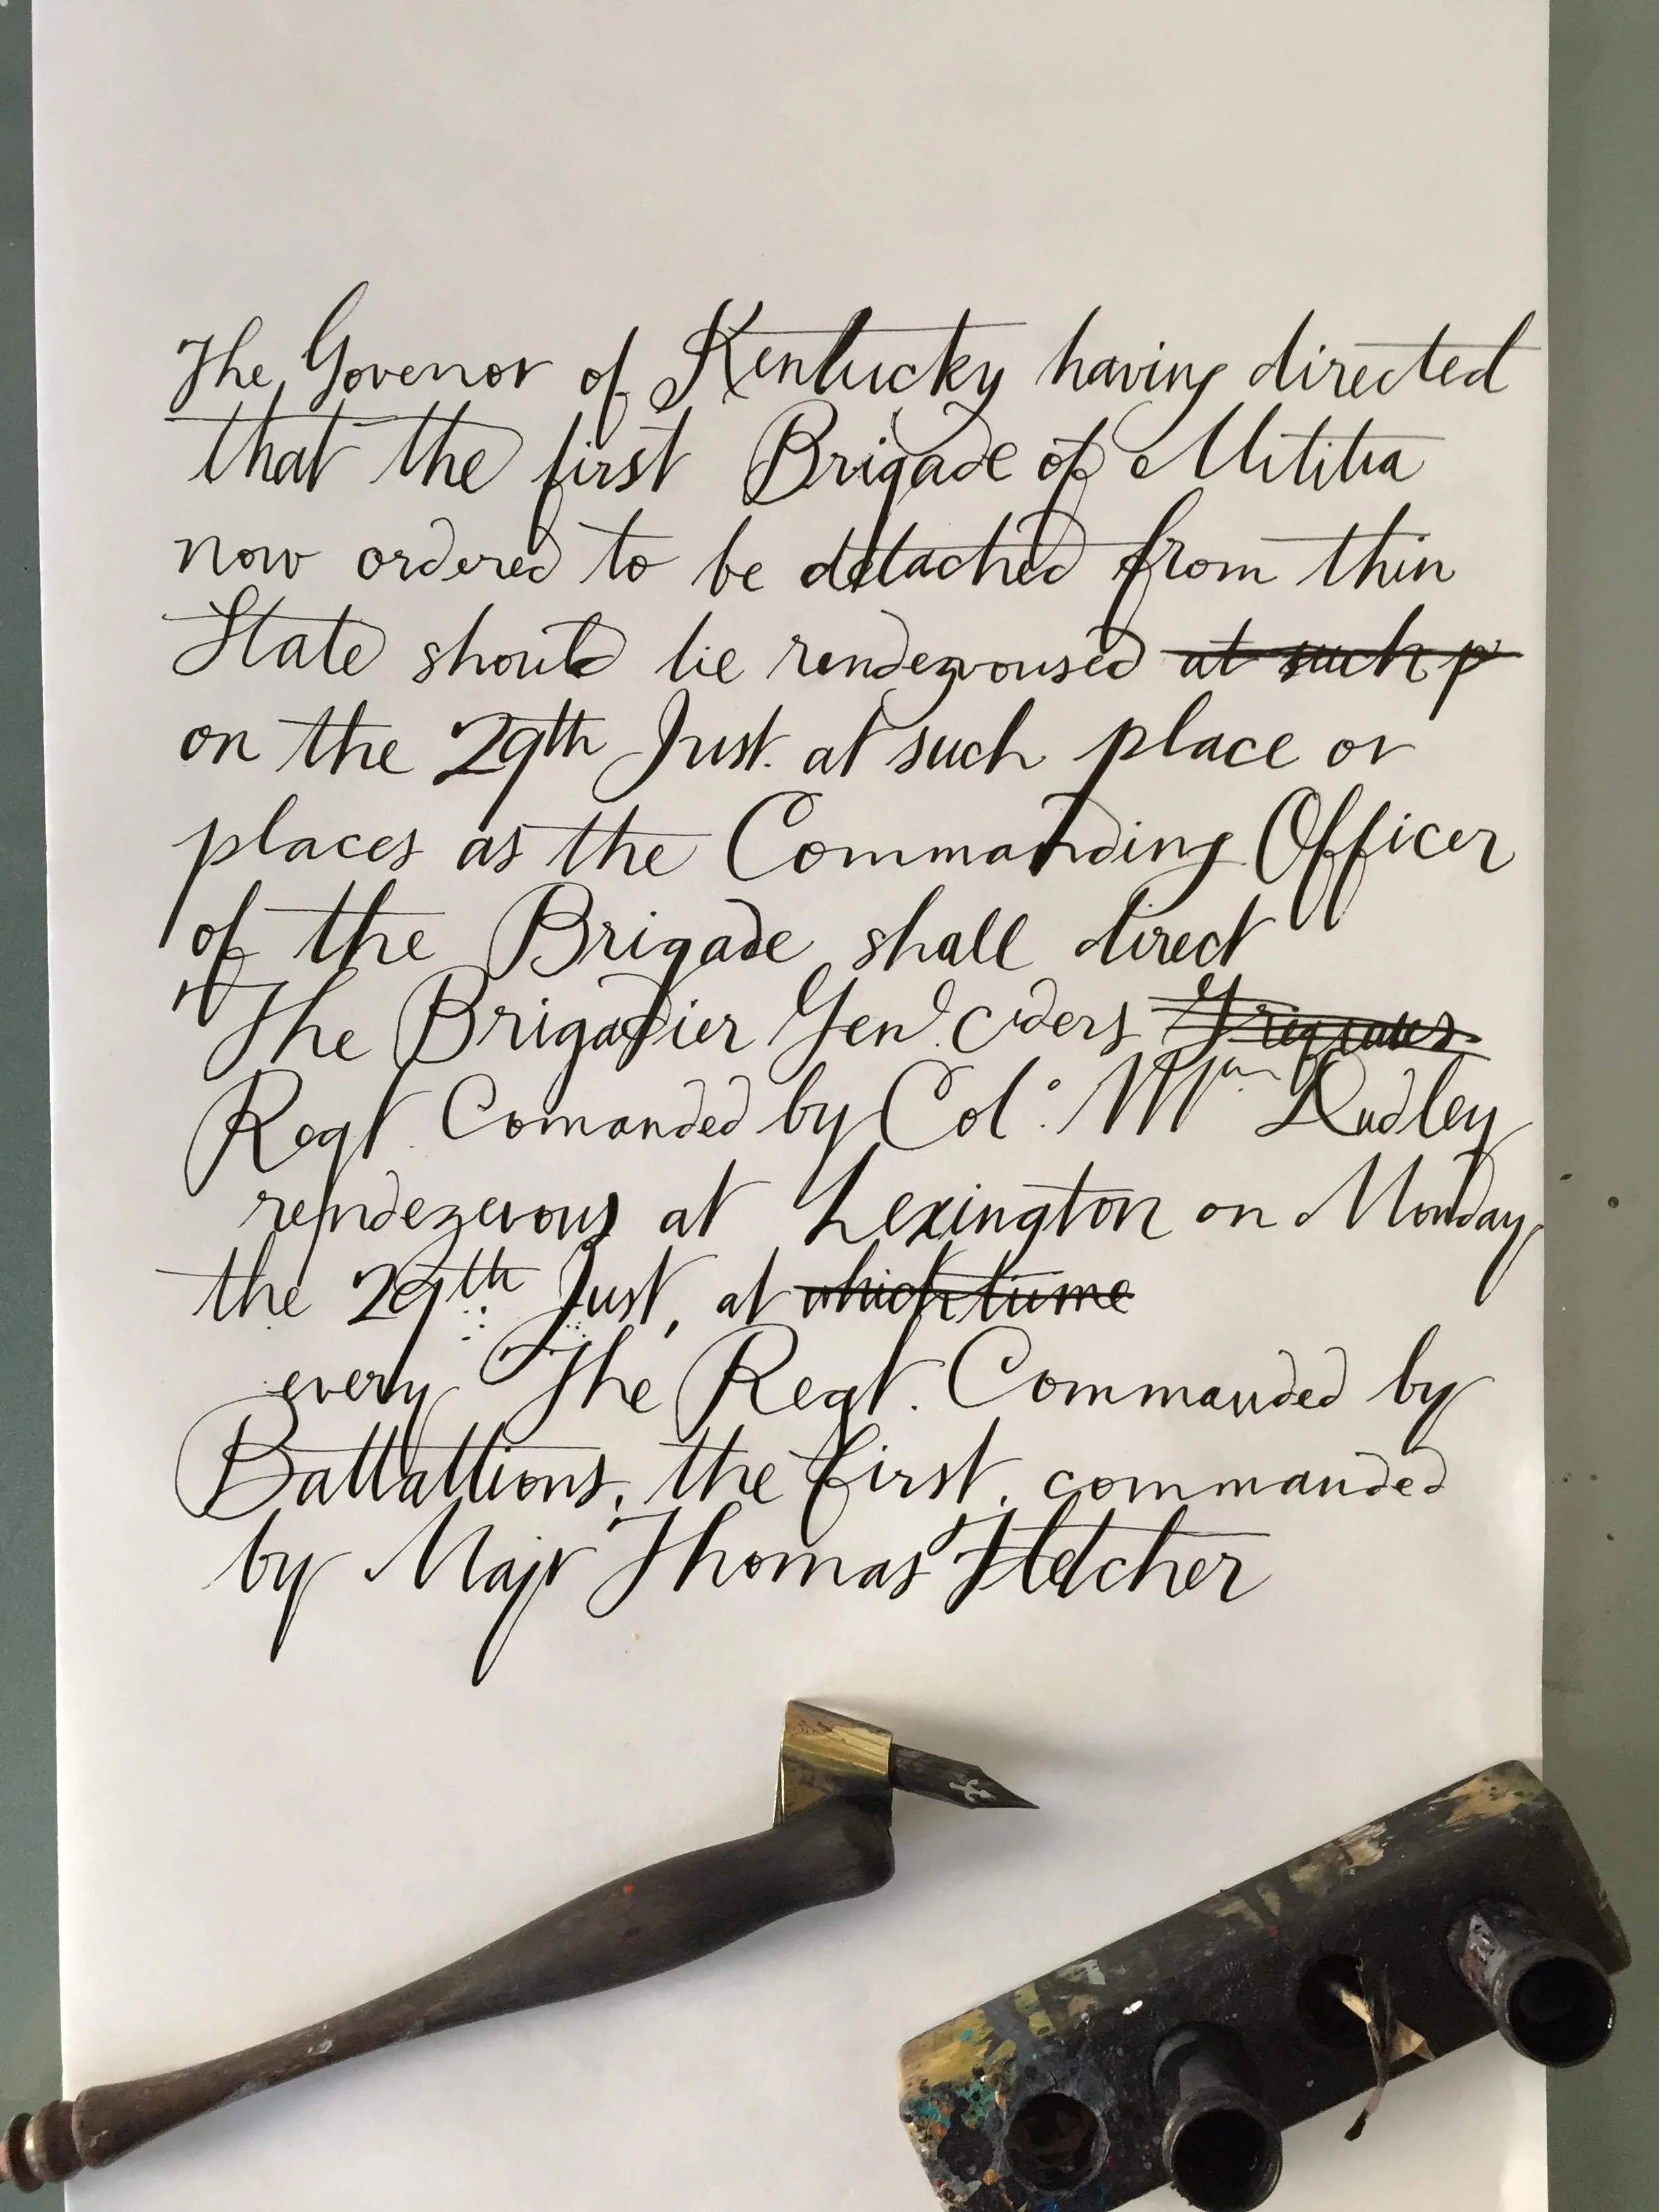 The Govenor of Kentucky having directed
that the first Brigade of Mititia
now ordered to be detached from thin
State should lie rendezvoused at such p
on the 29th Just. at such place or
places as the Commanding Officer
of the Brigade shall direct
The Brigadier Gen^l ciders
Regt. Comanded by Col: Wm Dudley
rendezevous at Lexington on Monday
the 29th Just, at which time
every The Regt. Commanded by
Battattions, the first, commanded
by Majr Thomas Fletcher